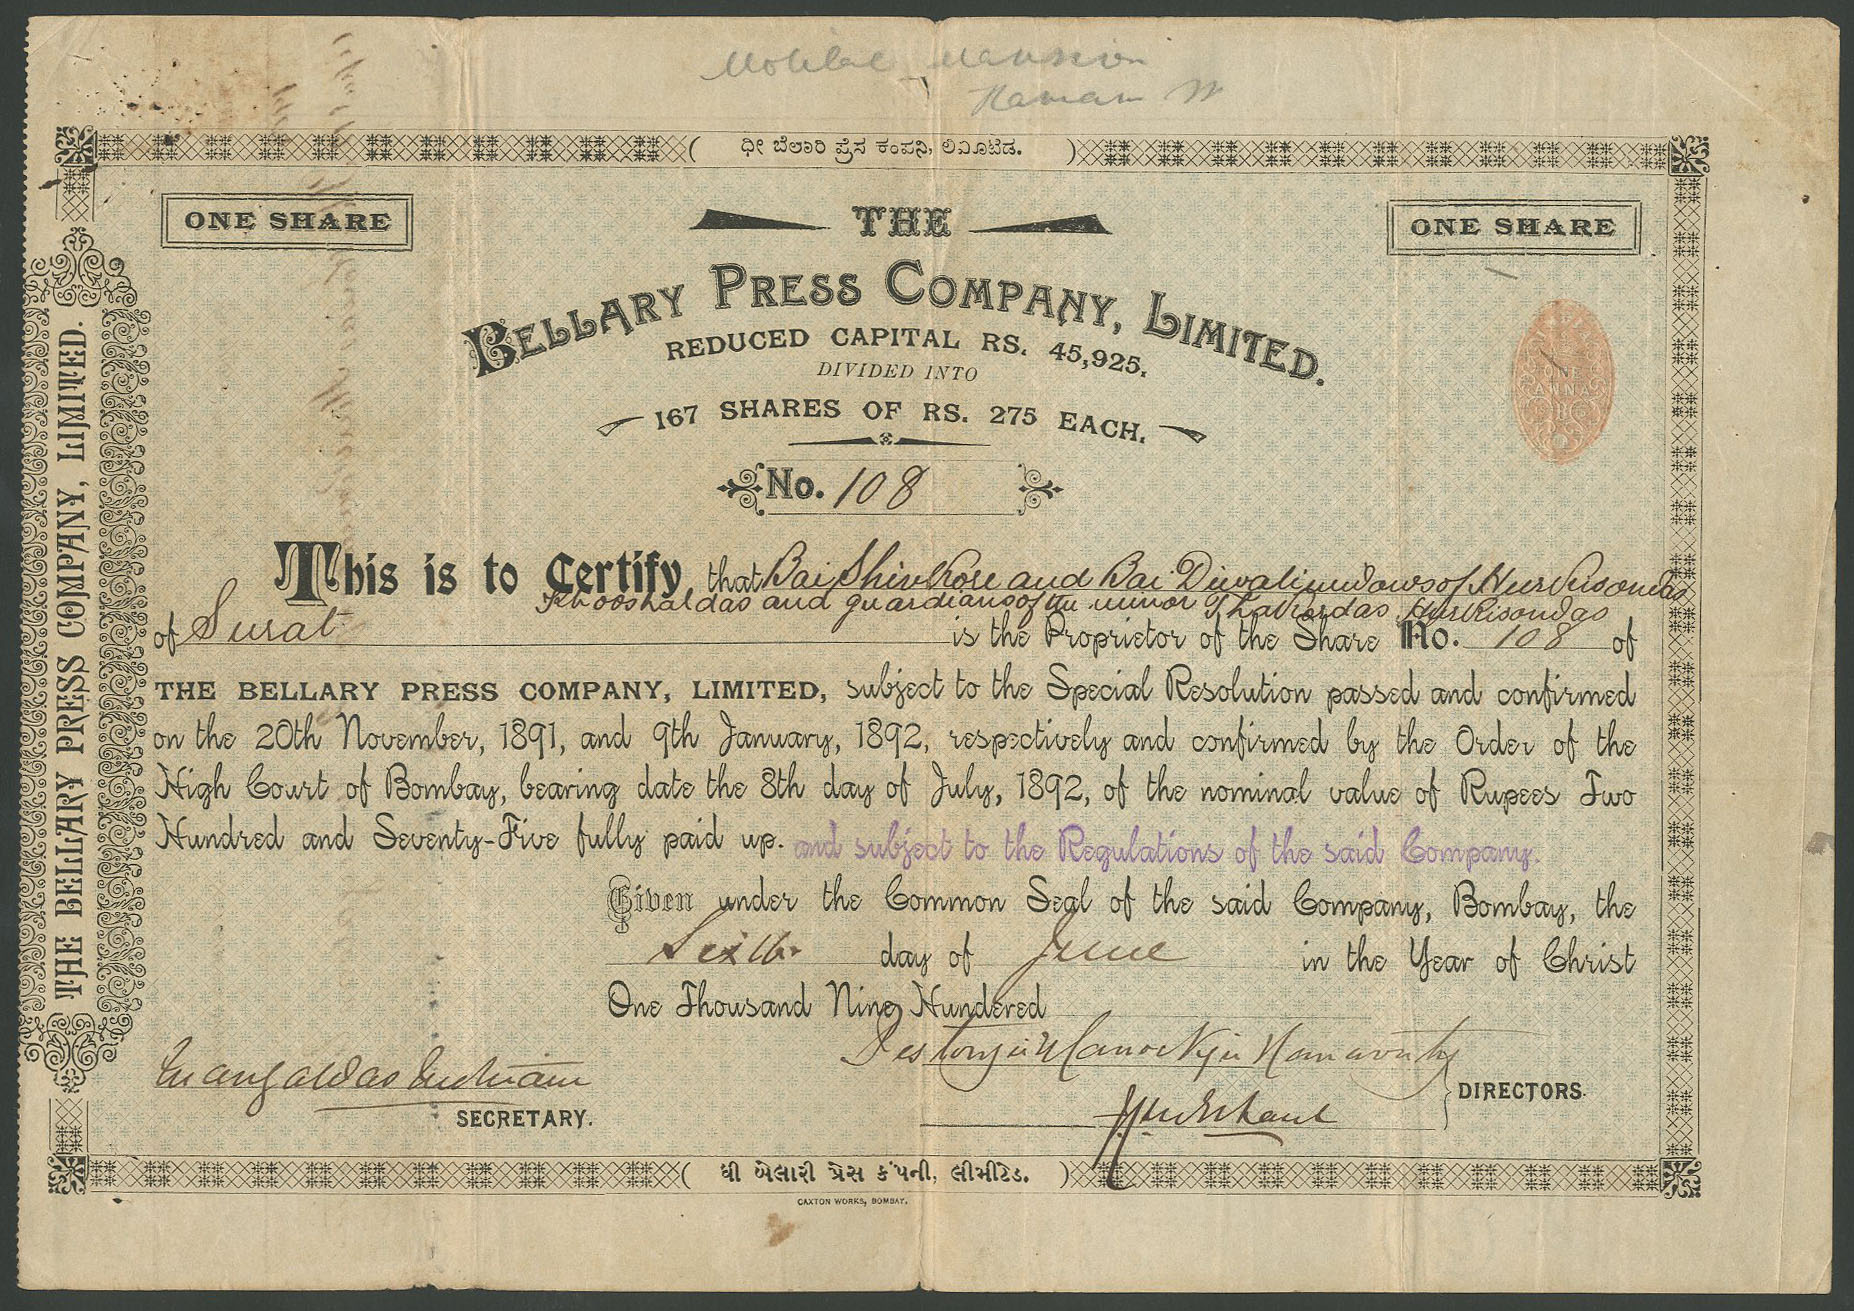 Mansion
( ధీ బెలారి ప్రెస కంపని, లిమిటెడ. )
ONE SHARE
ONE SHARE
THE
BELLARY PRESS COMPANY, LIMITED.
REDUCED CAPITAL RS. 45,925.
DIVIDED INTO
167 SHARES OF RS. 275 EACH.
ONE
ANNA
No. 108
This is to Certify that Bai Shivkore and Bai Diwali widows of Hurkisondas
Khooshaldas and guardians of the minor Thakordas Hurkisondas
of Surat is the Proprietor of the Share No. 108 of
THE BELLARY PRESS COMPANY, LIMITED, subject to the Special Resolution passed and confirmed
on the 20th November, 1891, and 9th January, 1892, respectively and confirmed by the Order of the
High Court of Bombay, bearing date the 8th day of July, 1892, of the nominal value of Rupees Two
Hundred and Seventy-Five fully paid up. and subject to the Regulations of the said Company.
Given under the Common Seal of the said Company, Bombay, the
Sixth day of June in the Year of Christ
One Thousand Nine Hundered
Pestonjee Manockjee
Mangaldas
SECRETARY.
DIRECTORS.
( ધી બેલારી પ્રેસ કંપની, લીમીટેડ. )
CAXTON WORKS, BOMBAY.
THE BELLARY PRESS COMPANY, LIMITED.